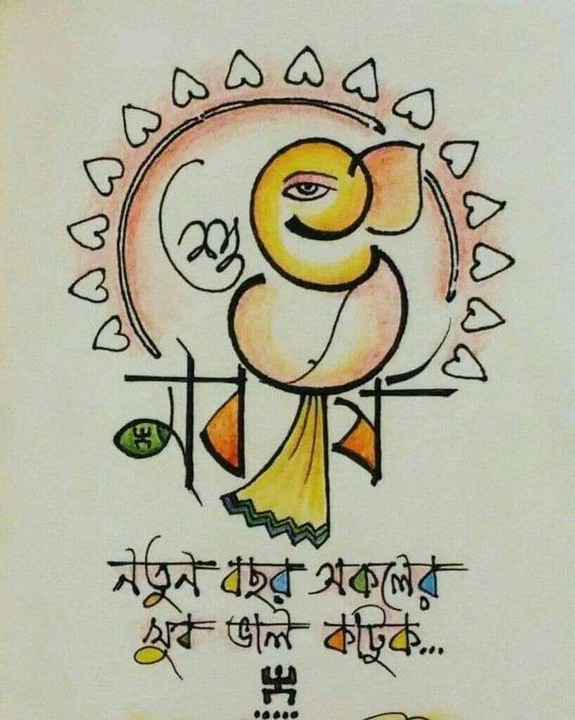 শুভ
নববর্ষ
নতুন বছর সকলের
খুব ভাল কাটুক...